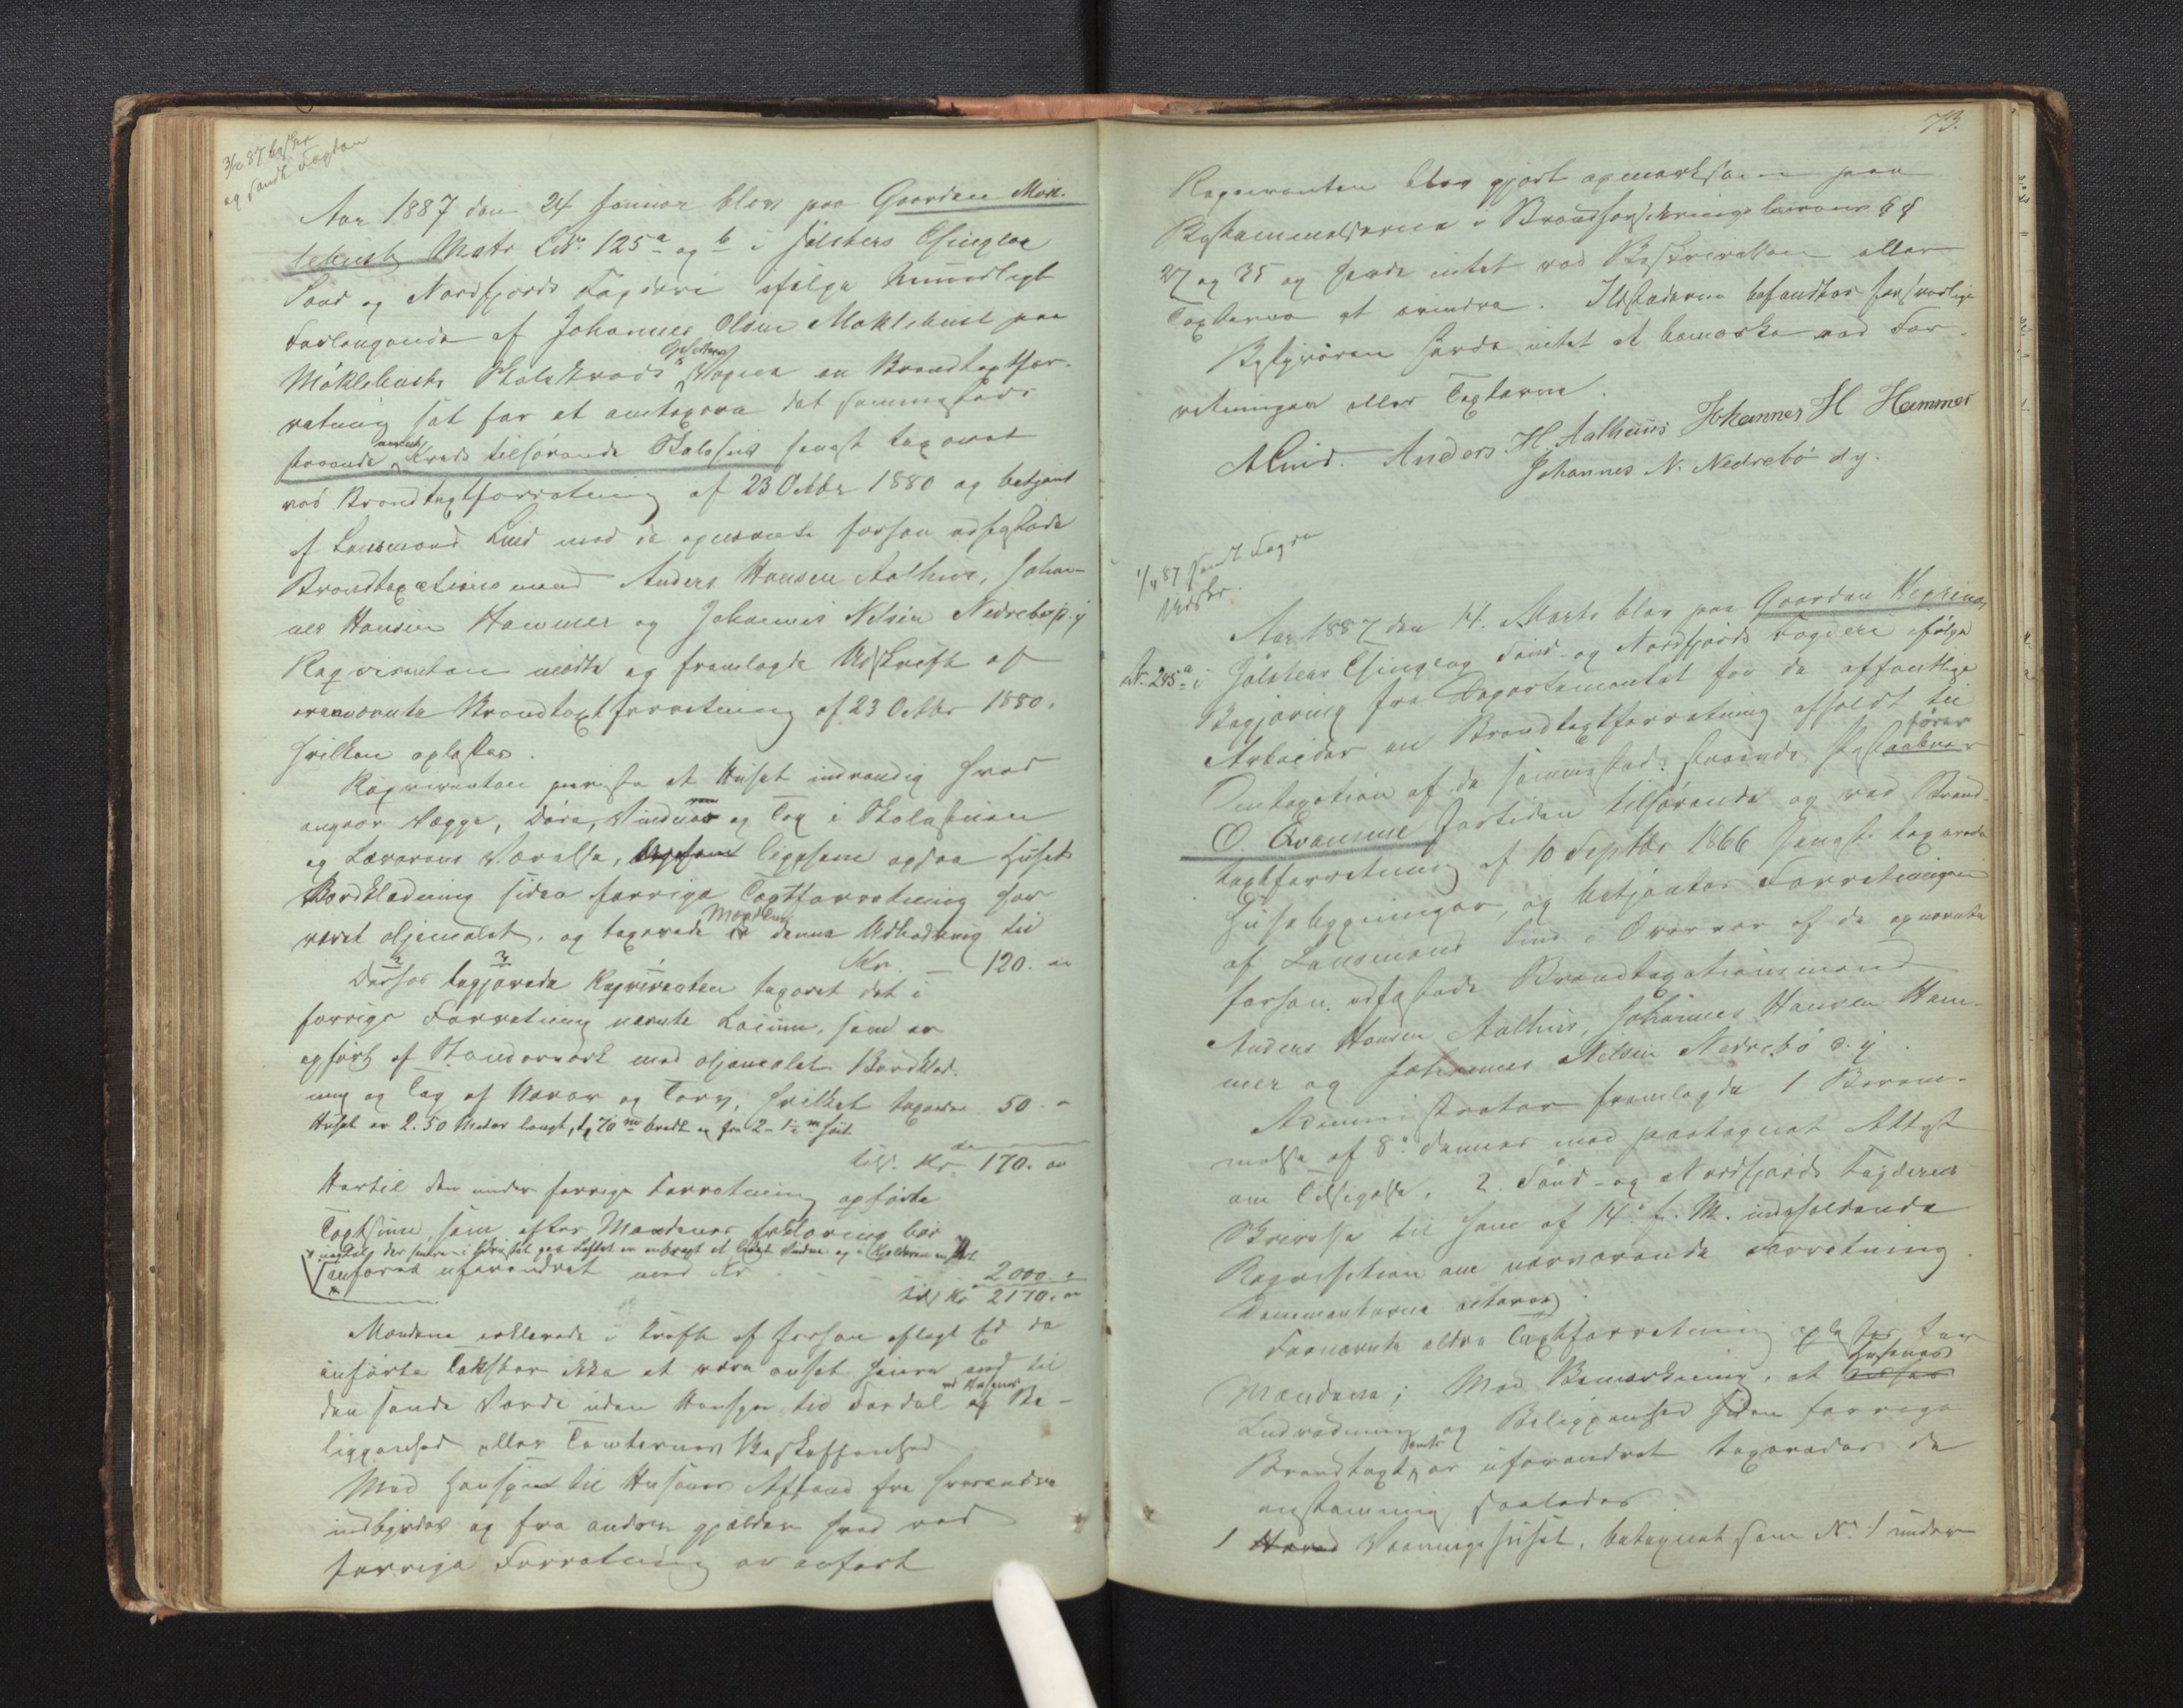 3/2 87 besk
og sendt Fogden
Aar 1887 den 24 Januar blev paa Gaarden Møk-
lebust Matr Lbr. 125a og b i Jølsters Thinglag
Sønd og Nordfjords Fogderi ifølge mundtligt
Forlangende af Johannes Olsen Møklebust paa
Møklebusts Skolekreds's Opsitteres Vegne en Brandtaxtfor-
retning sat for at omtaxere det sammesteds
staaende nævnte Kreds tilhørende Skolehus sengst taxeret
ved Brandtaxtforretning af 23 Octbr 1880 og betjent
af Lensmand Lind med de opnævnte forhen edfæstede
Brandtaxationsmænd Anders Hansen Aalhus, Johan-
nes Hansen Hammer og Johannes Nilsen Nedrebø d. y
Rekvirenten mødte og fremlagde Udskrift af
ovennævnte Brandtaxtforretning af 23 Octbr 1880.
hvilken oplæstes.
Rekvirenten paaviste at Huset indvendig hvad
angaar Vægge, Døre, Vinduer og Tag i Skolestuen
og Lærerens Værelse, ligesom ogsaa Husets
Bordklædning siden forrige Taxtforretning har
været oljemalet, og taxerede Mændene denne Udbedring til
Kr. — 120. 00
Derhos begjærede Rekvirenten taxeret det i
forrige Forretning nævnte Locum, som er
opført af Stænderværk med oljemalet Bordklæd-
ning og Tag af Never og Torv, hvilket taxeredes 50 "
Huset er 2.50 Meter langt, 1,70 m bredt og fra 2 - 1½ m høit
tils. Kr 170. 00
Hertil den under forrige Forretning opførte
Taxtsum, som efter Mændenes Erklæring bør
ansættes uforandret med Kr - - - 2000. "
tils Kr 2170. 00
Mændene erklærede i Kraft af forhen aflagt Ed de
anførte Takster ikke at være ansat høiere end til
den sande Værdi uden Hensyn til Fordel ved Husenes Be-
liggenhed eller Tomternes Beskaffenhed
Med Hensyn til Husenes Afstand fra hverandre
indbyrdes og fra andre gjælder hvad ved
forrige Forretning er anført
73.
Rekvirenten blev gjort opmærksom paa
Bestemmelserne i Brandforsikringslovens §§
27 og 35 og havde intet ved Beskrivelsen eller
Taxterne at erindre. Ildstederne befandtes forsvarlige
Bestyreren havde intet at bemærke ved For-
retningen eller Taxterne.
A Lind. Anders H Aalhuus Johannes H Hammer
Johannes N. Nedrebø d. y.
1/4 87 sendt Fogden
Udskr.
Aar 1887 den 14. Marts blev paa Gaarden
Nr. 245a i Jølsters Thinglag Sønd- og Nordfjords Fogderi ifølge
Begjæring fra Departementet for de offentlige
Arbeider en Brandtaxtforretning afholdt til
Omtaxation af de sammesteds staaende
O. Evensens tilhørende og ved Brand-
taxtforretning af 10 Septbr 1866 sengst taxerede
Husebygninger, og betjentes Forretningen
af Lensmand Lind i Overvær af de opnævnte
forhen edfæstede Brandtaxationsmænd
Anders Hansen Aalhus, Johannes Hansen Ham-
mer og Johannes Nilsen Nedrebø d. y.
Administrator fremlagde 1 Beram-
melse af 8de dennes med paategnet Attest
om Tilsigelse, 2. Sønd- og Nordfjords Fogderies
Skrivelse til ham af 14de f. M. indeholdende
Rekvisition om nærværende Forretning.
Dokumenterne
Fornævnte ældre Taxtforretning oplæstes for
Mændene; Med Bemærkning, at Husenes
Indredning og Beliggenhed siden forrige
Brandtaxt er uforandret taxeredes de
enstemmig saaledes
1 Vaaningshuset, betegnet som No. 1 under